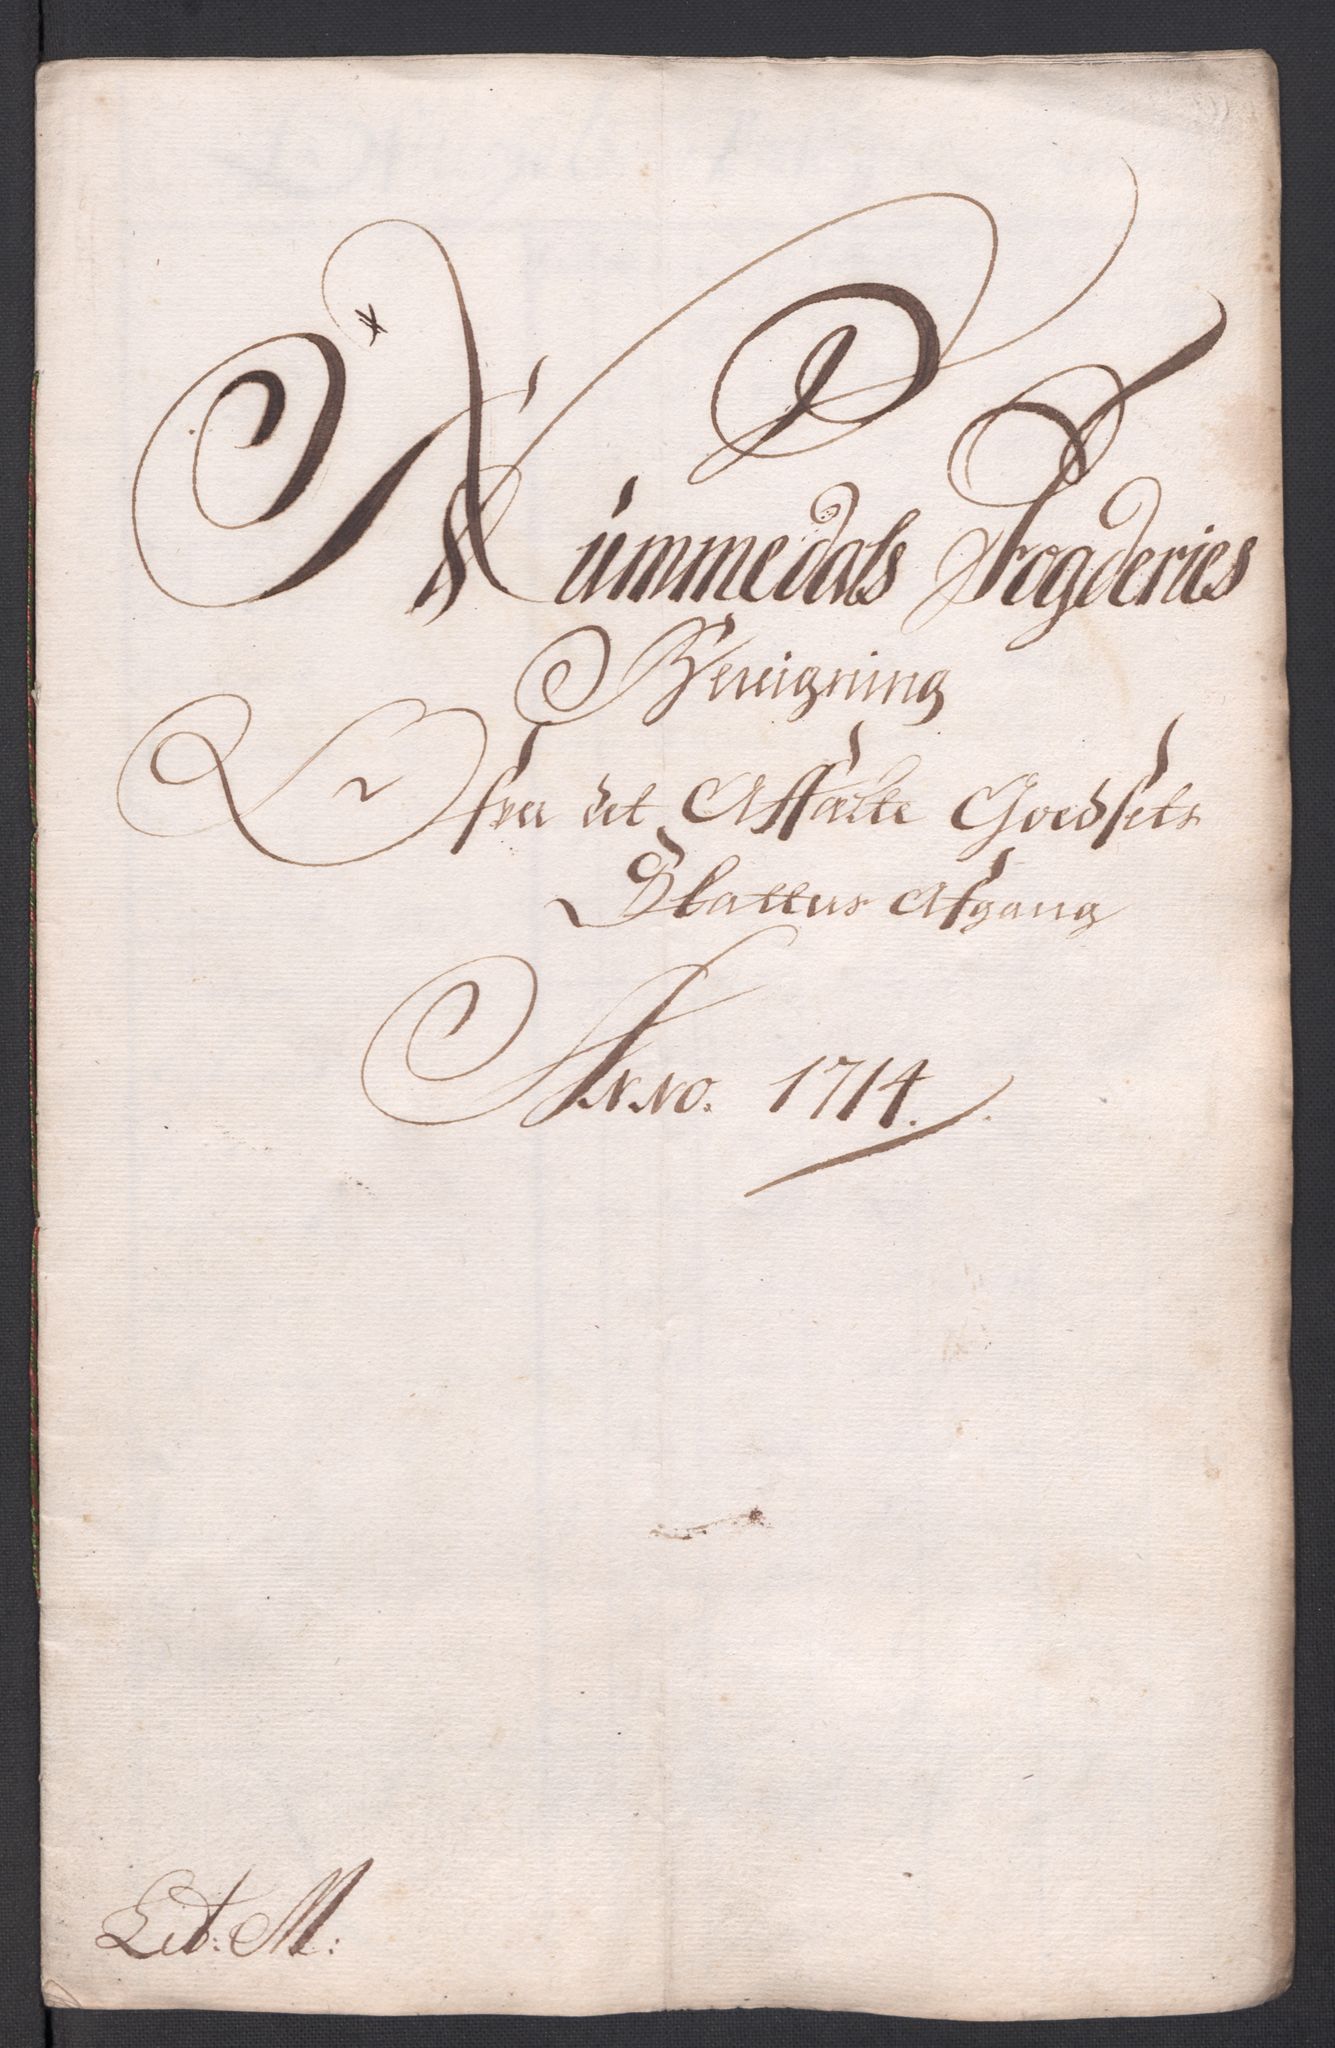 Nummedals Fogderies
Bereigning
Ofver det Affälte Goedsets
Skatters Afgang
Anno. 1714.
Lit: M: